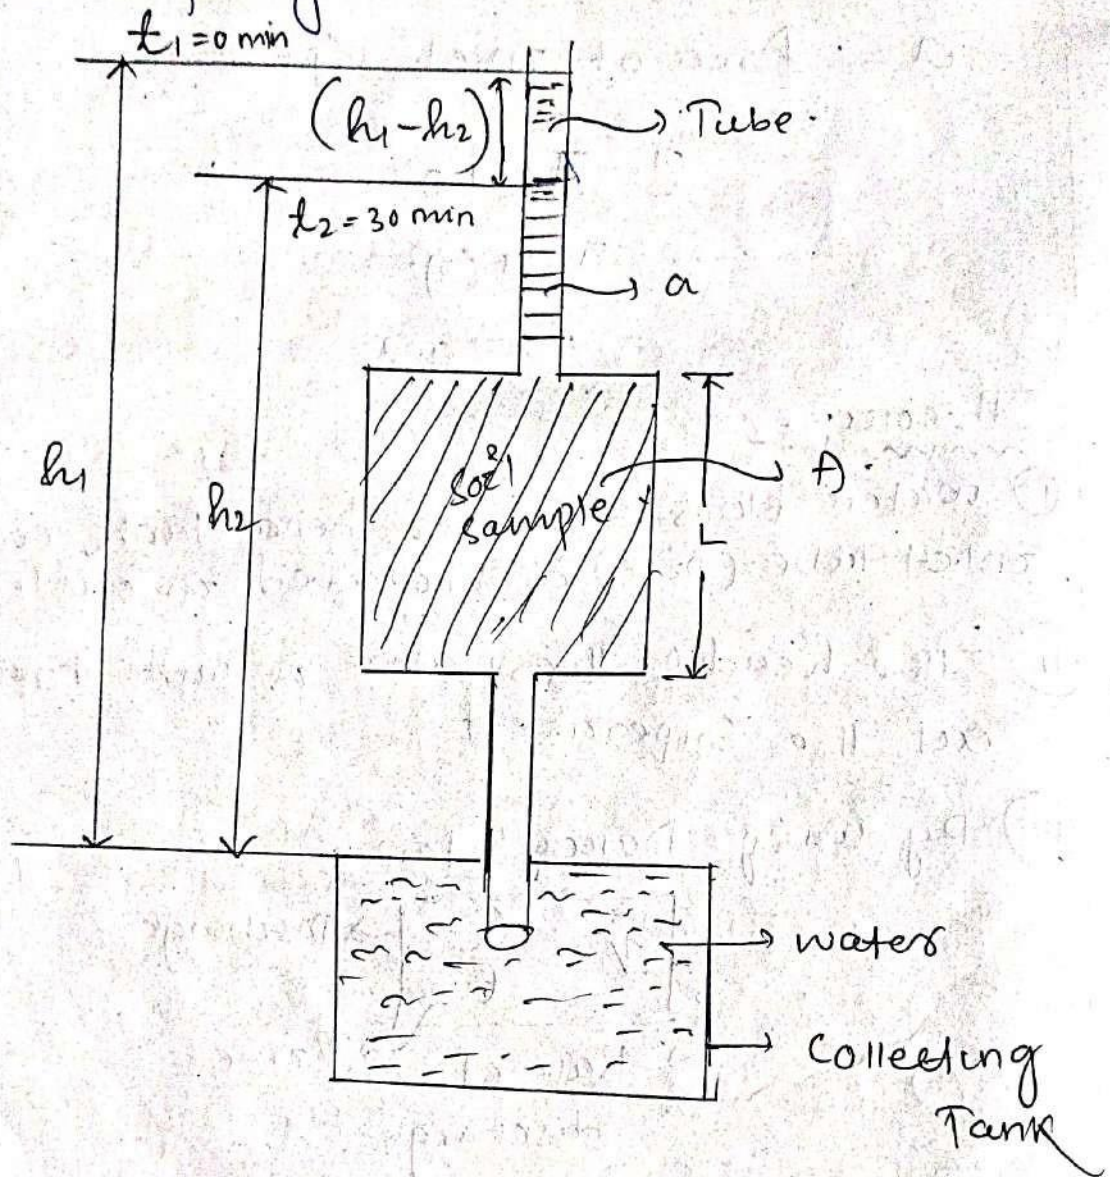 t₁=0 min
(h₁-h₂)
Tube.
t₂=30 min
a
h₁
h₂
soil
sample
A
L
water
Collecting
Tank